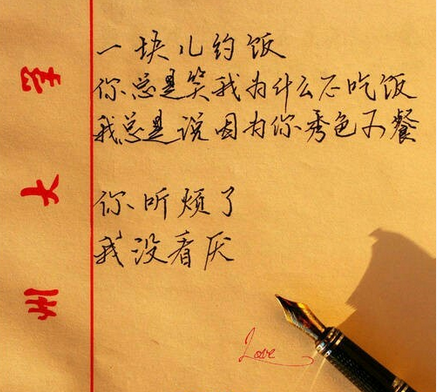 一块儿约饭
你总是笑我为什么不吃饭
我总是说因为你秀色可餐
你听烦了
我没看厌
Love